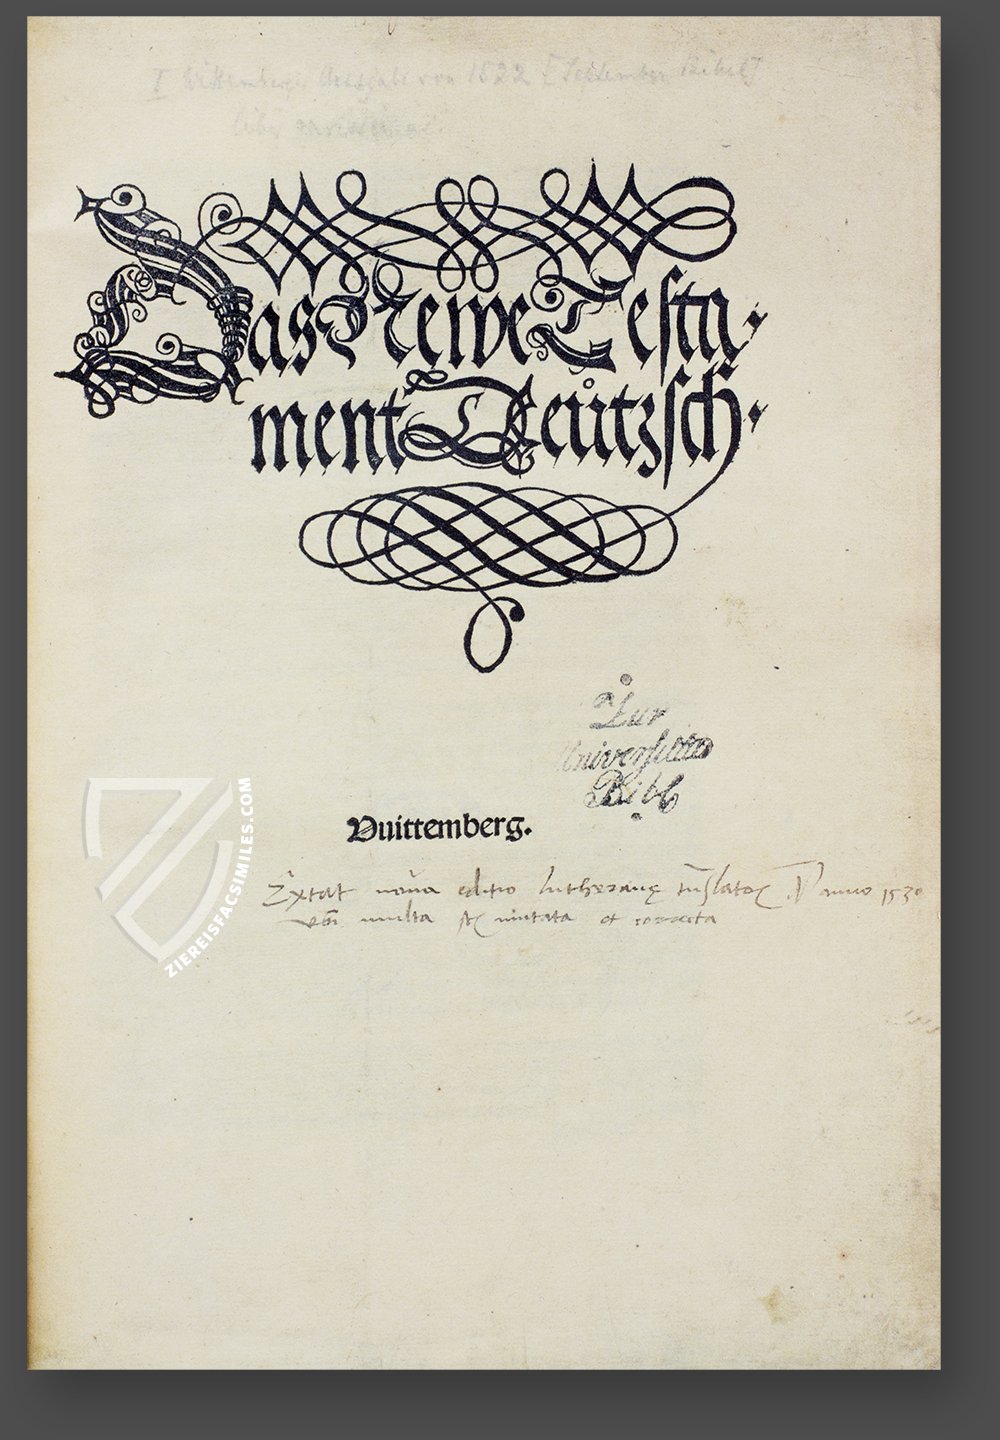 I Wittemberger Ausgabe von 1522 [September Bibel]
liber
Das Newe Testa
ment Deůtzsch.
Zur
Universitäts
Bibl
Vuittemberg.
Extat nova editio Lutheranę anno 1530
multa mutata et correcta
ZIEREISFACSIMILES.COM